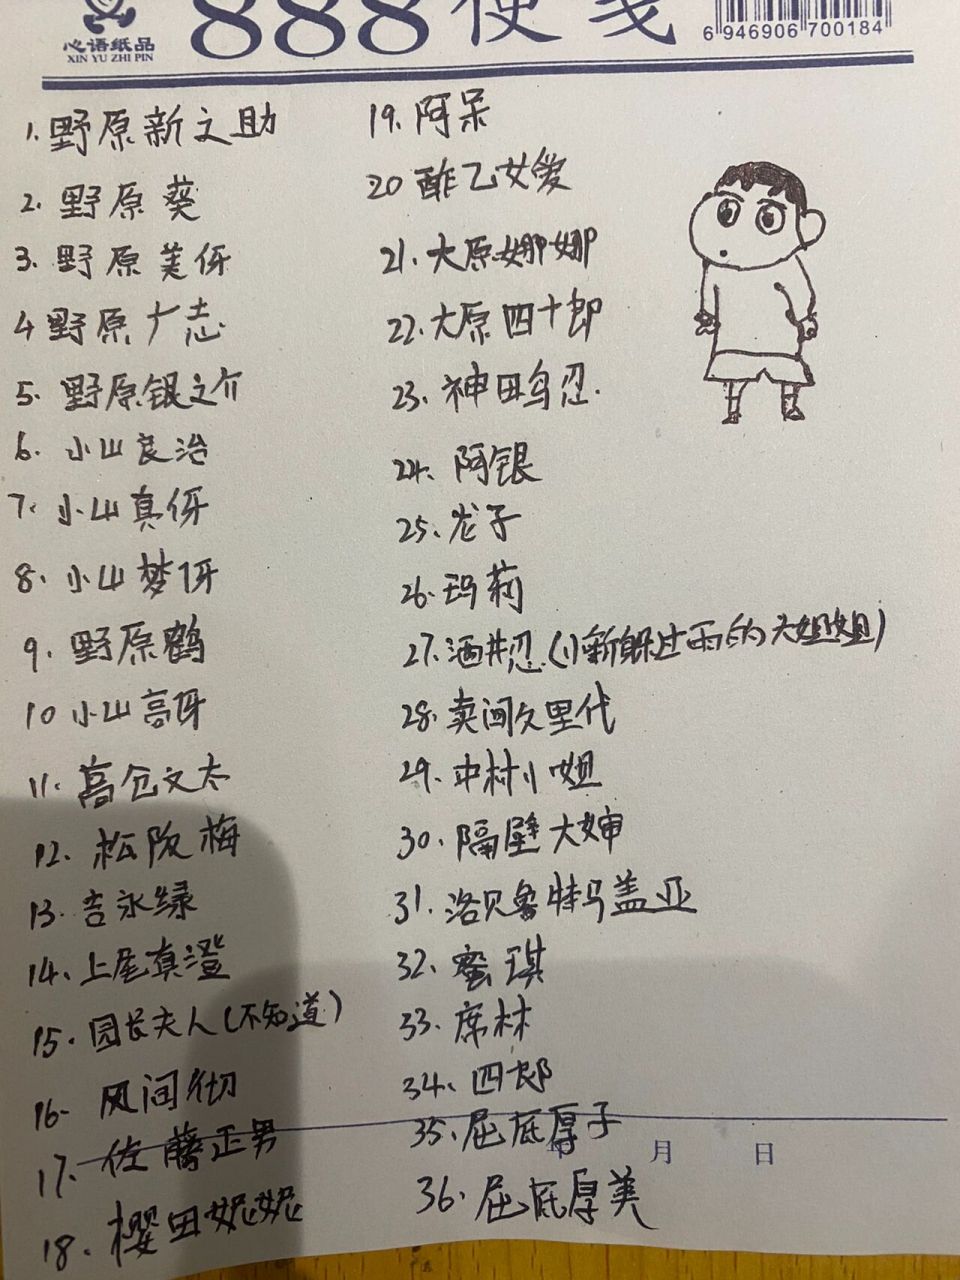 888便笺
心语纸品
XIN YU ZHI PIN
6 946906 700184
1. 野原新之助
2. 野原葵
3. 野原美伢
4 野原广志
5. 野原银之介
6. 小山良治
7. 小山真伢
8. 小山梦伢
9. 野原鹤
10 小山高伢
11. 高仓文太
12. 松阪梅
13. 吉永绿
14. 上尾真澄
15. 园长夫人(不知道)
16. 风间彻
17. 佐藤正男
18. 樱田妮妮
19. 阿呆
20 酢乙女爱
21. 大原娜娜
22. 大原四十郎
23. 神田鸟忍.
24. 阿银
25. 龙子
26. 玛莉
27. 酒井忍(小新躲过雨的大姐姐)
28. 卖间久里代
29. 中村小姐
30. 隔壁大婶
31. 洛贝鲁特马盖亚
32. 蜜琪
33. 席林
34. 四郎
35. 屈底厚子
36. 屈底厚美
年 月 日